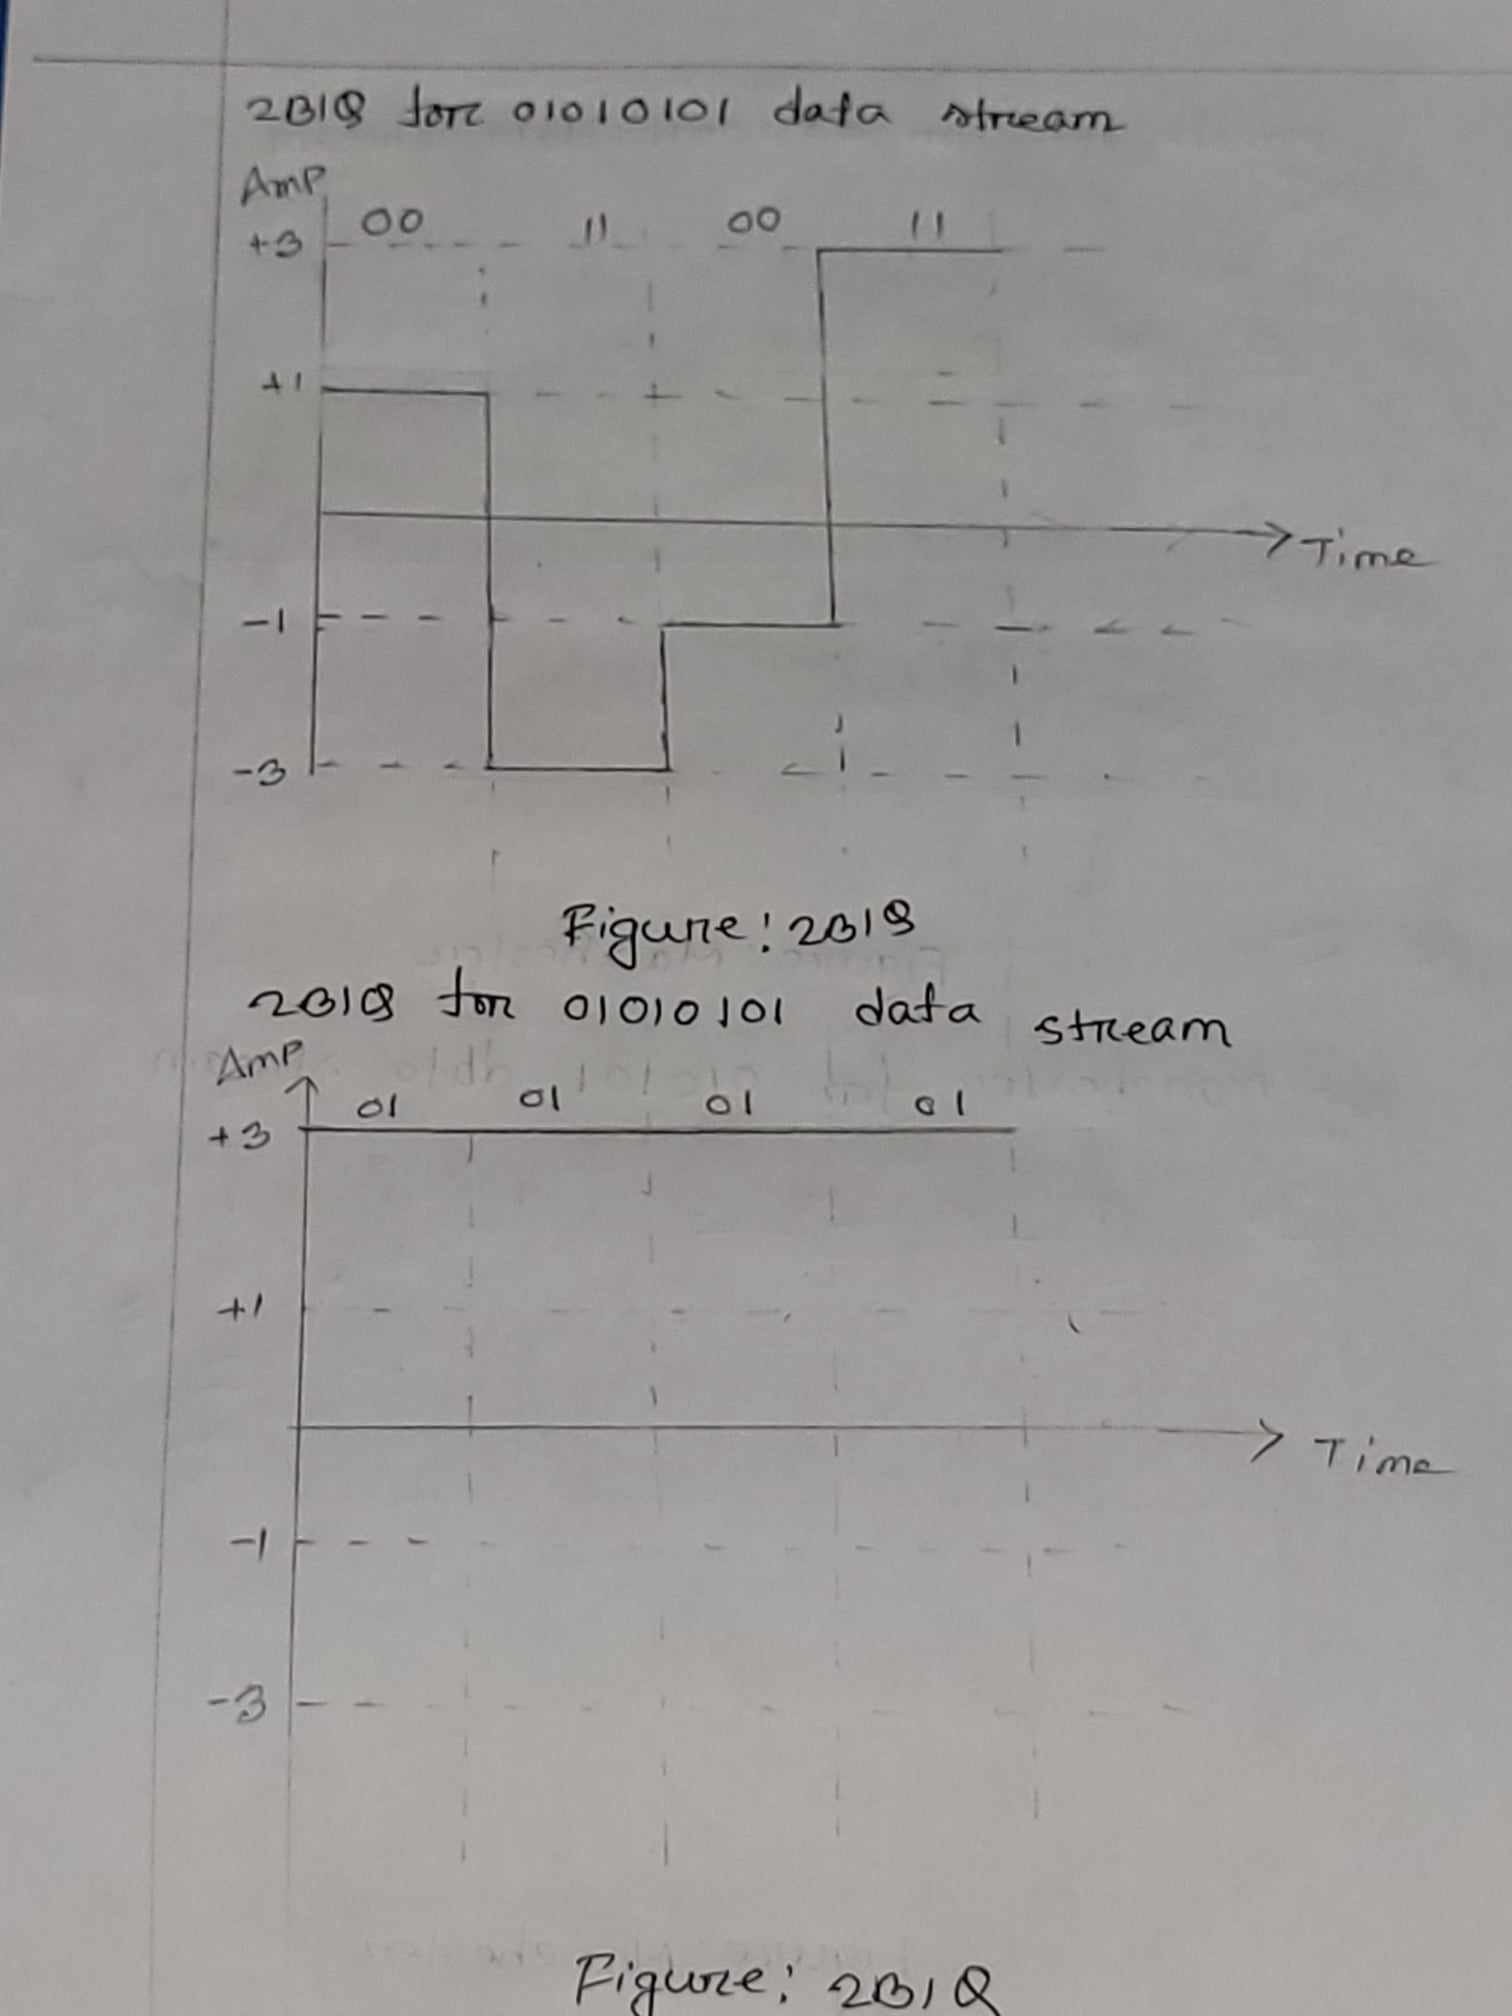 2B1Q for 01010101 data stream
Amp
00 11 00 11
+3
+1
Time
-1
-3
Figure: 2B1Q
2B1Q for 01010101 data stream
Amp
01 01 01 01
+3
+1
Time
-1
-3
Figure: 2B1Q